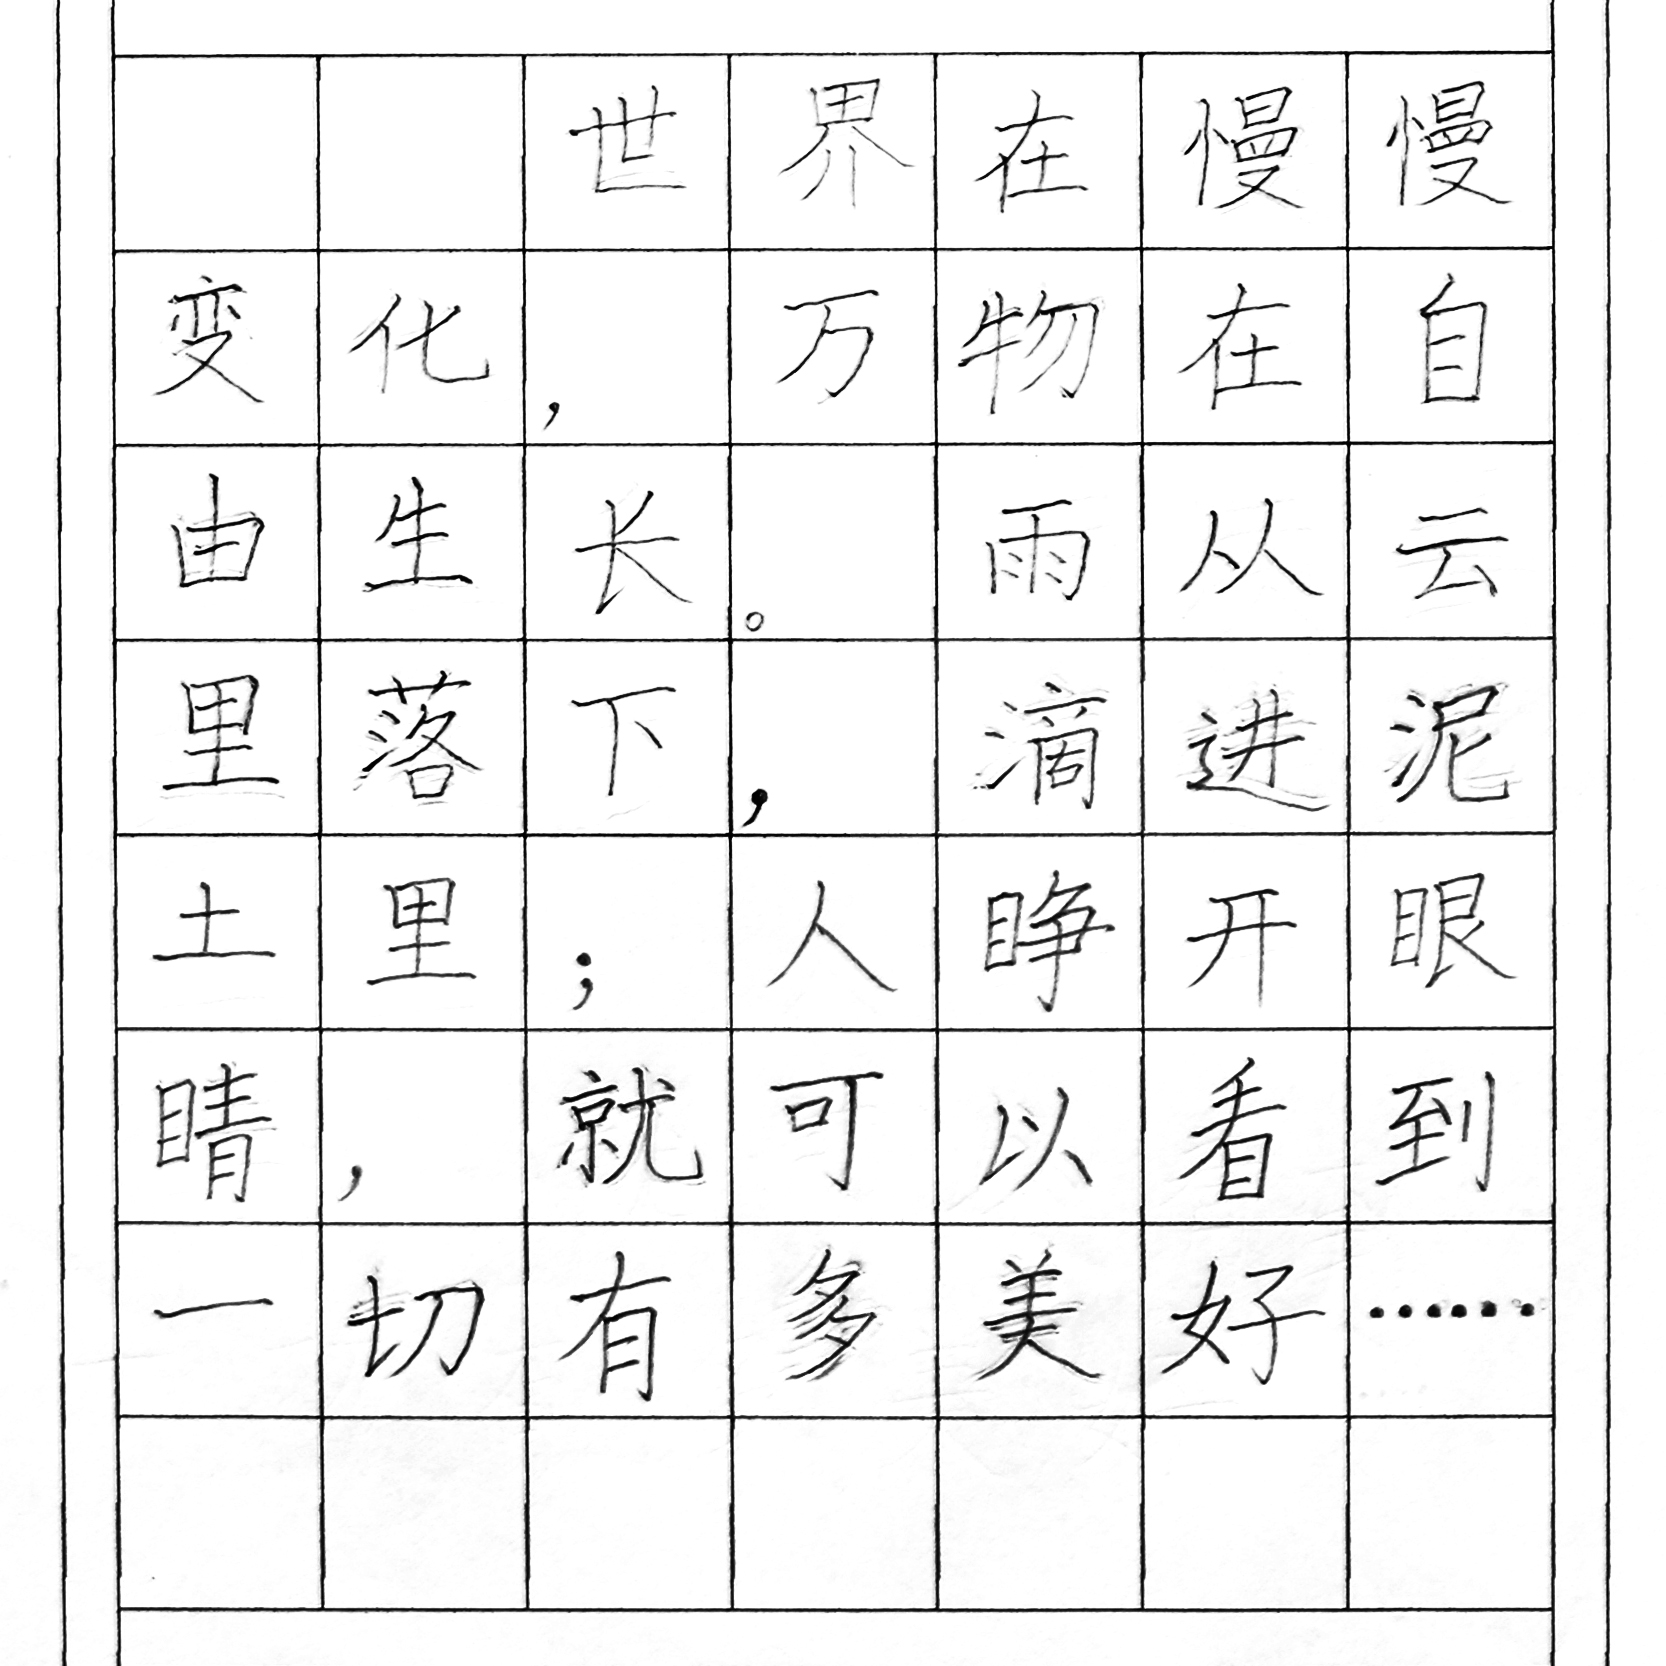 世界在慢慢
变化，万物在自
由生长。雨从云
里落下，滴进泥
土里；人睁开眼
睛，就可以看到
一切有多美好……